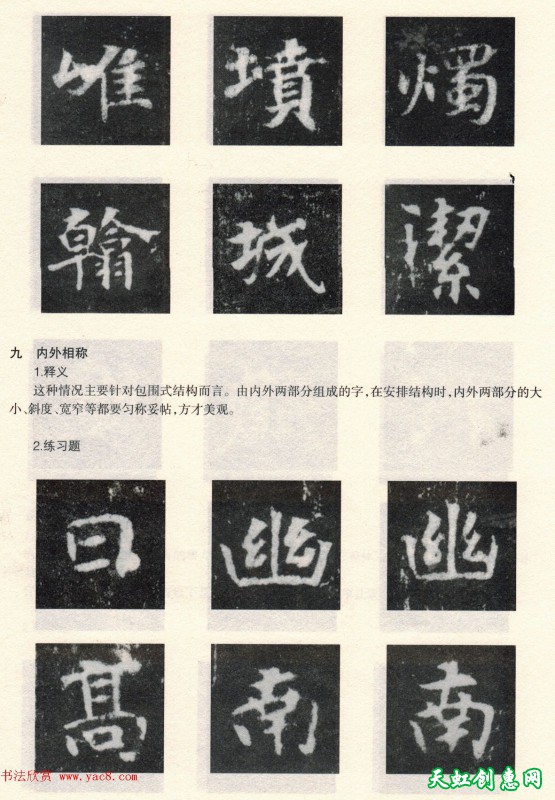 唯 墳 燭
翰 城 潔
九 内外相称
1.释义
这种情况主要针对包围式结构而言。由内外两部分组成的字,在安排结构时,内外两部分的大
小、斜度、宽窄等都要匀称妥帖,方才美观。
2.练习题
曰 幽 幽
髙 南 南
书法欣赏 www.yac8.com
天虹创惠网